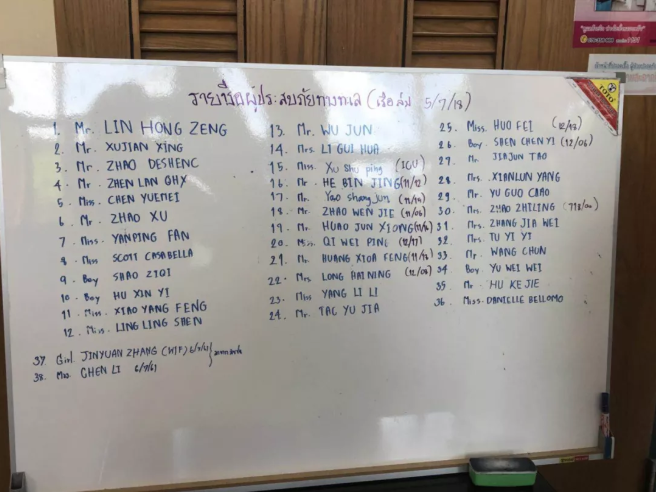 รายชื่อผู้ประสบภัยทางทะเล (เรือล่ม 5/7/18)
1. Mr. LIN HONG ZENG
2. Mr. XUJIAN XING
3. Mr. ZHAO DESHENC
4. Mr. ZHEN LAN GHX
5. Miss. CHEN YUEMEI
6. Mr. ZHAO XU
7. Miss. YANPING FAN
8. Miss SCOTT CASABELLA
9. Boy SHAO ZIQI
10. Boy HU XIN YI
11. Miss. XIAO YANG FENG
12. Miss. LING LING SHEN
37. Girl. JINYUAN ZHANG (WIP)
38. Miss CHEN LI 6/7/61
13. Mr. WU JUN
14. Mrs. LI GUI HUA
15. Miss. Xu Shu ping (ICU)
16. Mr. HE BIN JING (11/12)
17. Mr. Yao shang jun
18. Mr. ZHAO WEN JIE (11/06)
19. Mr. HUAO JUN XIONG
20. Miss. QI WEI PING (12/17)
21. HUANG XIOA FENG
22. Mrs. LONG HAI NING (12/08)
23. Miss YANG LI LI
24. Mr. TAC YU JIA
25. Miss. HUO FEI
26. Boy. SHEN CHEN YI (12/06)
27. Mr. JIAJUN TAO
28. Mrs. XIANLUN YANG
29. Mr. YU GUO CAAO
30. Mrs. ZHAO ZHILING
31. Mrs. ZHANG JIA WEI
32. Mrs. TU YI YI
33. Mr. WANG CHUN
34. Boy. YU WEI WEI
35. Mr. HU KE JIE
36. Miss. DANIELLE BELLOMO
TOYO